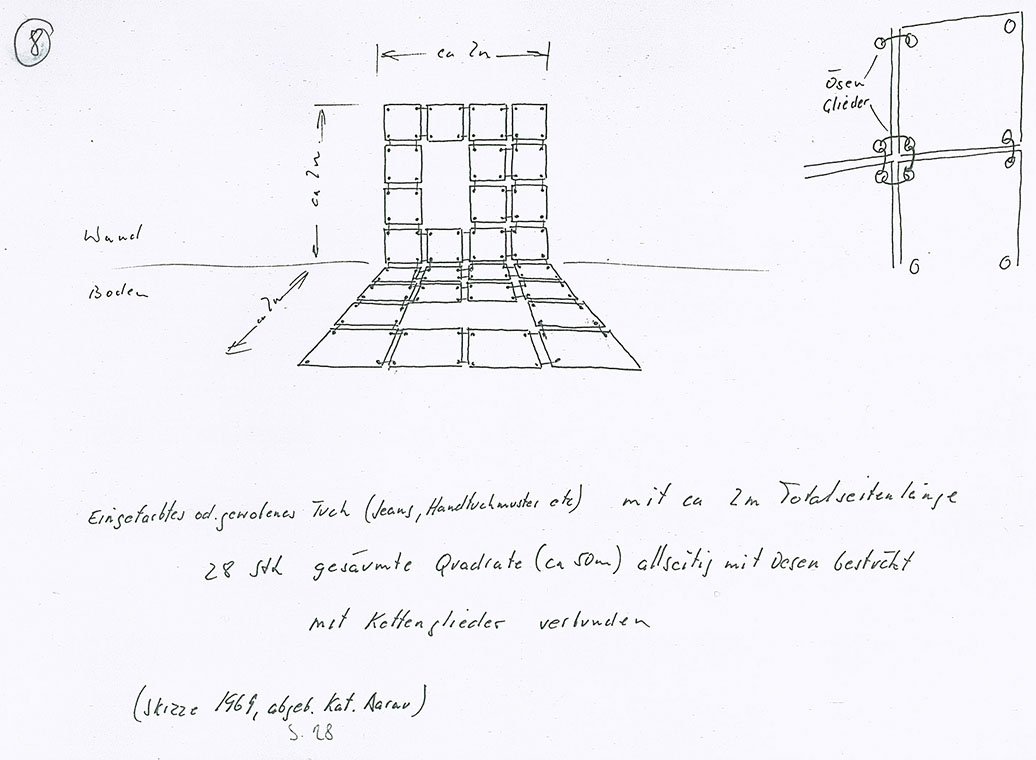 8
ca 2m
Ösen
Glieder
ca 2m
Wand
Boden
ca 2m
Eingefärbtes od. gewobenes Tuch (Jeans, Handtuchmuster etc) mit ca 2m Totalseitenlänge
28 Stk gesäumte Quadrate (ca 50m) allseitig mit Oesen bestückt
mit Kettenglieder verbunden
(Skizze 1969, abgeb. Kat. Aarau)
S. 28